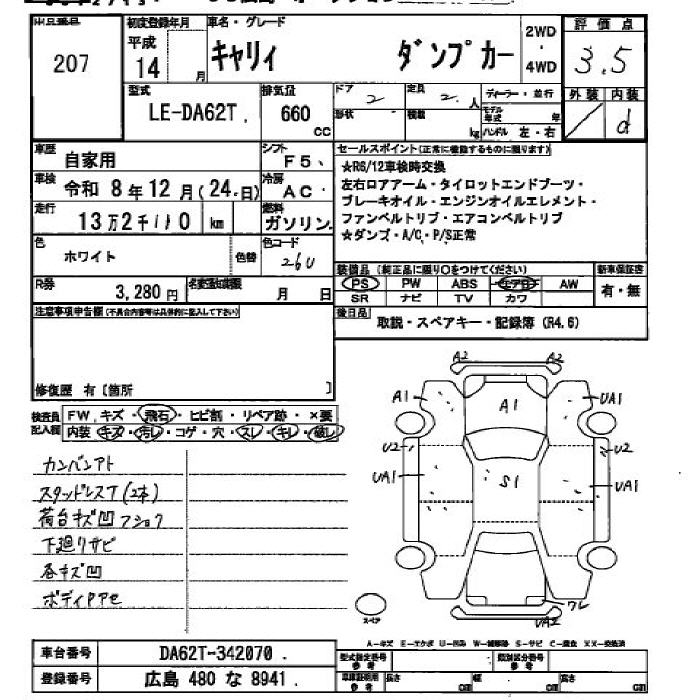 出品番号
207
初度登録年月
平成
14 月
車名・グレード
キャリィ ダンプカー
2WD
・
4WD
評価点
3.5
外装 内装
d
型式
LE-DA62T
排気量
660
cc
ドア
2
定員
2 人
ディーラー・並行
形状
積載
kg
モデル年式 年
ハンドル 左・右
車歴
自家用
シフト
F5
車検
令和 8年12月(24日)
冷房
AC
走行
13万2千110 km
燃料
ガソリン
色
ホワイト
色替
色コード
26U
R券
3,280円
名変通知期限
月 日
セールスポイント(正常に機能するものに限ります)
★R6/12車検時交換
左右ロアアーム・タイロットエンドブーツ・
ブレーキオイル・エンジンオイルエレメント・
ファンベルトリブ・エアコンベルトリブ
★ダンプ・A/C・P/S正常
装備品(純正品に限り○をつけてください)
新車保証書
PS PW ABS エアB AW
SR ナビ TV カワ
有・無
後日品
取説・スペアキー・記録簿(R4.6)
注意事項申告欄(不具合内容等は具体的に記入して下さい)
修復歴 有〔箇所 〕
検査員
記入欄
FW.キズ・飛石・ヒビ割・リペア跡・×要
内装 キズ・汚レ・コゲ・穴・スレ・キレ・破レ
カンバンアト
スタッドレスT(2本)
荷台キズ凹フショク
下廻りサビ
各キズ凹
ボディPPセ
A2 A2
A1 A1 UA1
U2 U2
UA1 S1 UA1
ワレ
UA2
スペア
A-キズ E-エクボ U-凹み W-補修跡 S-サビ C-腐食 XX-交換済
車台番号
DA62T-342070
登録番号
広島 480 な 8941
型式指定番号
参考
類別区分番号
参考
車庫証明用
参考
長さ cm 幅 cm 高さ cm